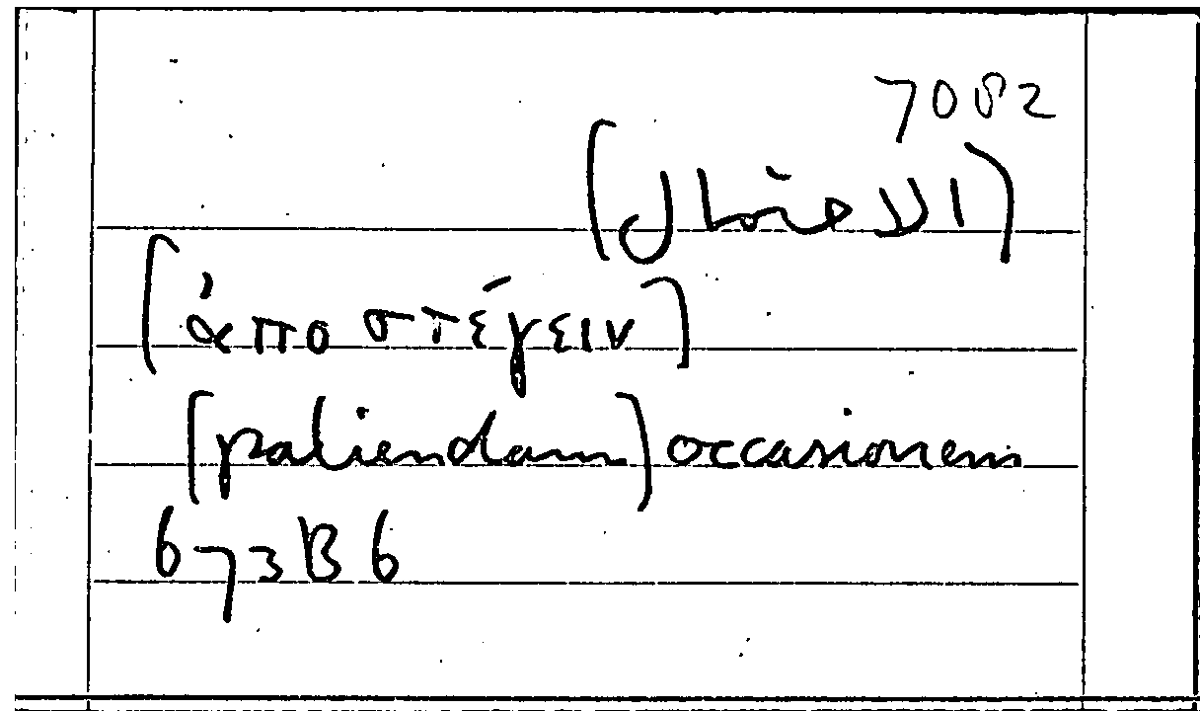 7082
[ἀποστέγειν]
[patiendam] occasionem
673B6